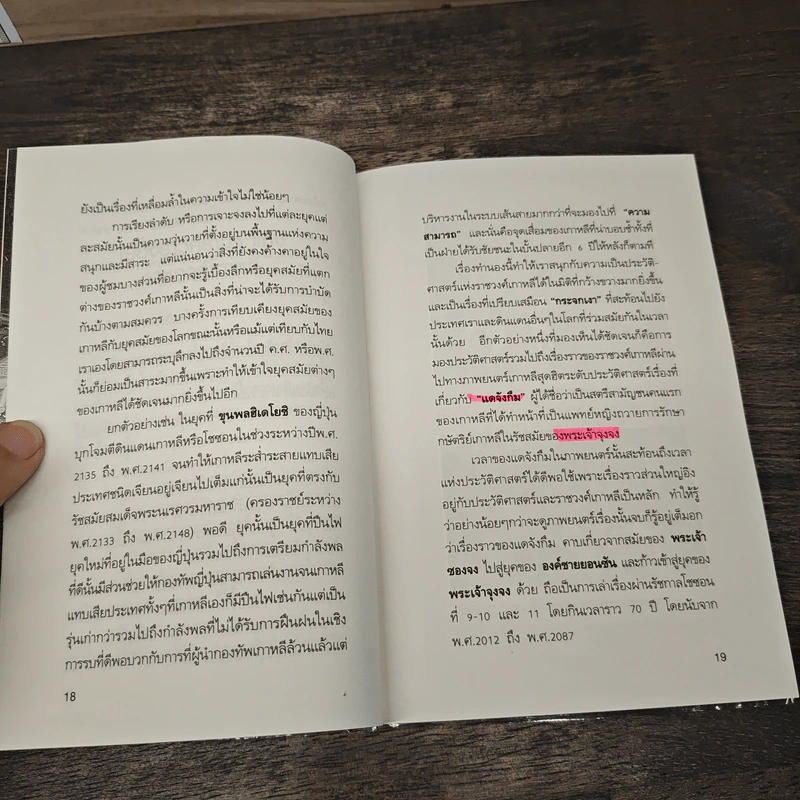 ยังเป็นเรื่องที่เหลื่อมล้ำในความเข้าใจไม่ใช่น้อยๆ
การเรียงลำดับ หรือการเจาะจงลงไปที่แต่ละยุคแต่
ละสมัยนั้นเป็นความวุ่นวายที่ตั้งอยู่บนพื้นฐานแห่งความ
สนุกและมีสาระ แต่แน่นอนว่าสิ่งที่ยังคงค้างคาอยู่ในใจ
ของผู้ชมบางส่วนที่อยากจะรู้เบื้องลึกหรือยุคสมัยที่แตก
ต่างของราชวงศ์เกาหลีนั้นเป็นสิ่งที่น่าจะได้รับการบำบัด
กันบ้างตามสมควร บางครั้งการเทียบเคียงยุคสมัยของ
เกาหลีกับยุคสมัยของโลกขณะนั้นหรือแม้แต่เทียบกับไทย
เราเองโดยสามารถระบุลึกลงไปถึงจำนวนปี ค.ศ. หรือพ.ศ.
นั้นก็ย่อมเป็นสาระมากขึ้นเพราะทำให้เข้าใจยุคสมัยต่างๆ
ของเกาหลีได้ชัดเจนมากยิ่งขึ้นไปอีก
ยกตัวอย่างเช่น ในยุคที่ ขุนพลฮิเดโยชิ ของญี่ปุ่น
บุกโจมตีดินแดนเกาหลีหรือโชซอนในช่วงระหว่างปีพ.ศ.
2135 ถึง พ.ศ.2141 จนทำให้เกาหลีระส่ำระสายแทบเสีย
ประเทศชนิดเจียนอยู่เจียนไปเต็มแก่นั้นเป็นยุคที่ตรงกับ
รัชสมัยสมเด็จพระนเรศวรมหาราช (ครองราชย์ระหว่าง
พ.ศ.2133 ถึง พ.ศ.2148) พอดี ยุคนั้นเป็นยุคที่ปืนไฟ
ยุคใหม่ที่อยู่ในมือของญี่ปุ่นรวมไปถึงการเตรียมกำลังพล
ที่ดีนั้นมีส่วนช่วยให้กองทัพญี่ปุ่นสามารถเล่นงานจนเกาหลี
แทบเสียประเทศทั้งๆที่เกาหลีเองก็มีปืนไฟเช่นกันแต่เป็น
รุ่นเก่ากว่ารวมไปถึงกำลังพลที่ไม่ได้รับการฝึกฝนในเชิง
การรบที่ดีพอบวกกับการที่ผู้นำกองทัพเกาหลีล้วนแล้วแต่
18
บริหารงานในระบบเส้นสายมากกว่าที่จะมองไปที่ "ความ
สามารถ" และนั่นคือจุดเสื่อมของเกาหลีที่น่าบอบช้ำทั้งที่
เป็นฝ่ายได้รับชัยชนะในบั้นปลายอีก 6 ปีให้หลังก็ตามที
เรื่องทำนองนี้ทำให้เราสนุกกับความเป็นประวัติ-
ศาสตร์แห่งราชวงศ์เกาหลีได้ในมิติที่กว้างขวางมากยิ่งขึ้น
และเป็นเรื่องที่เปรียบเสมือน "กระจกเงา" ที่สะท้อนไปยัง
ประเทศเราและดินแดนอื่นๆในโลกที่ร่วมสมัยกันในเวลา
นั้นด้วย อีกตัวอย่างหนึ่งที่มองเห็นได้ชัดเจนก็คือการ
มองประวัติศาสตร์รวมไปถึงเรื่องราวของราชวงศ์เกาหลีผ่าน
ไปทางภาพยนตร์เกาหลีสุดฮิตระดับประวัติศาสตร์เรื่องที่
เกี่ยวกับ "แดจังกึม" ผู้ได้ชื่อว่าเป็นสตรีสามัญชนคนแรก
ของเกาหลีที่ได้ทำหน้าที่เป็นแพทย์หญิงถวายการรักษา
กษัตริย์เกาหลีในรัชสมัยของพระเจ้าจุงจง
เวลาของแดจังกึมในภาพยนตร์นั้นสะท้อนถึงเวลา
แห่งประวัติศาสตร์ได้ดีพอใช้เพราะเรื่องราวส่วนใหญ่อิง
อยู่กับประวัติศาสตร์และราชวงศ์เกาหลีเป็นหลัก ทำให้รู้
ว่าอย่างน้อยๆกว่าจะดูภาพยนตร์เรื่องนั้นจบก็รู้อยู่เต็มอก
ว่าเรื่องราวของแดจังกึม คาบเกี่ยวจากสมัยของ พระเจ้า
ซองจง ไปสู่ยุคของ องค์ชายยอนซัน และก้าวเข้าสู่ยุคของ
พระเจ้าจุงจง ด้วย ถือเป็นการเล่าเรื่องผ่านรัชกาลโชซอน
ที่ 9-10 และ 11 โดยกินเวลาราว 70 ปี โดยนับจาก
พ.ศ.2012 ถึง พ.ศ.2087
19